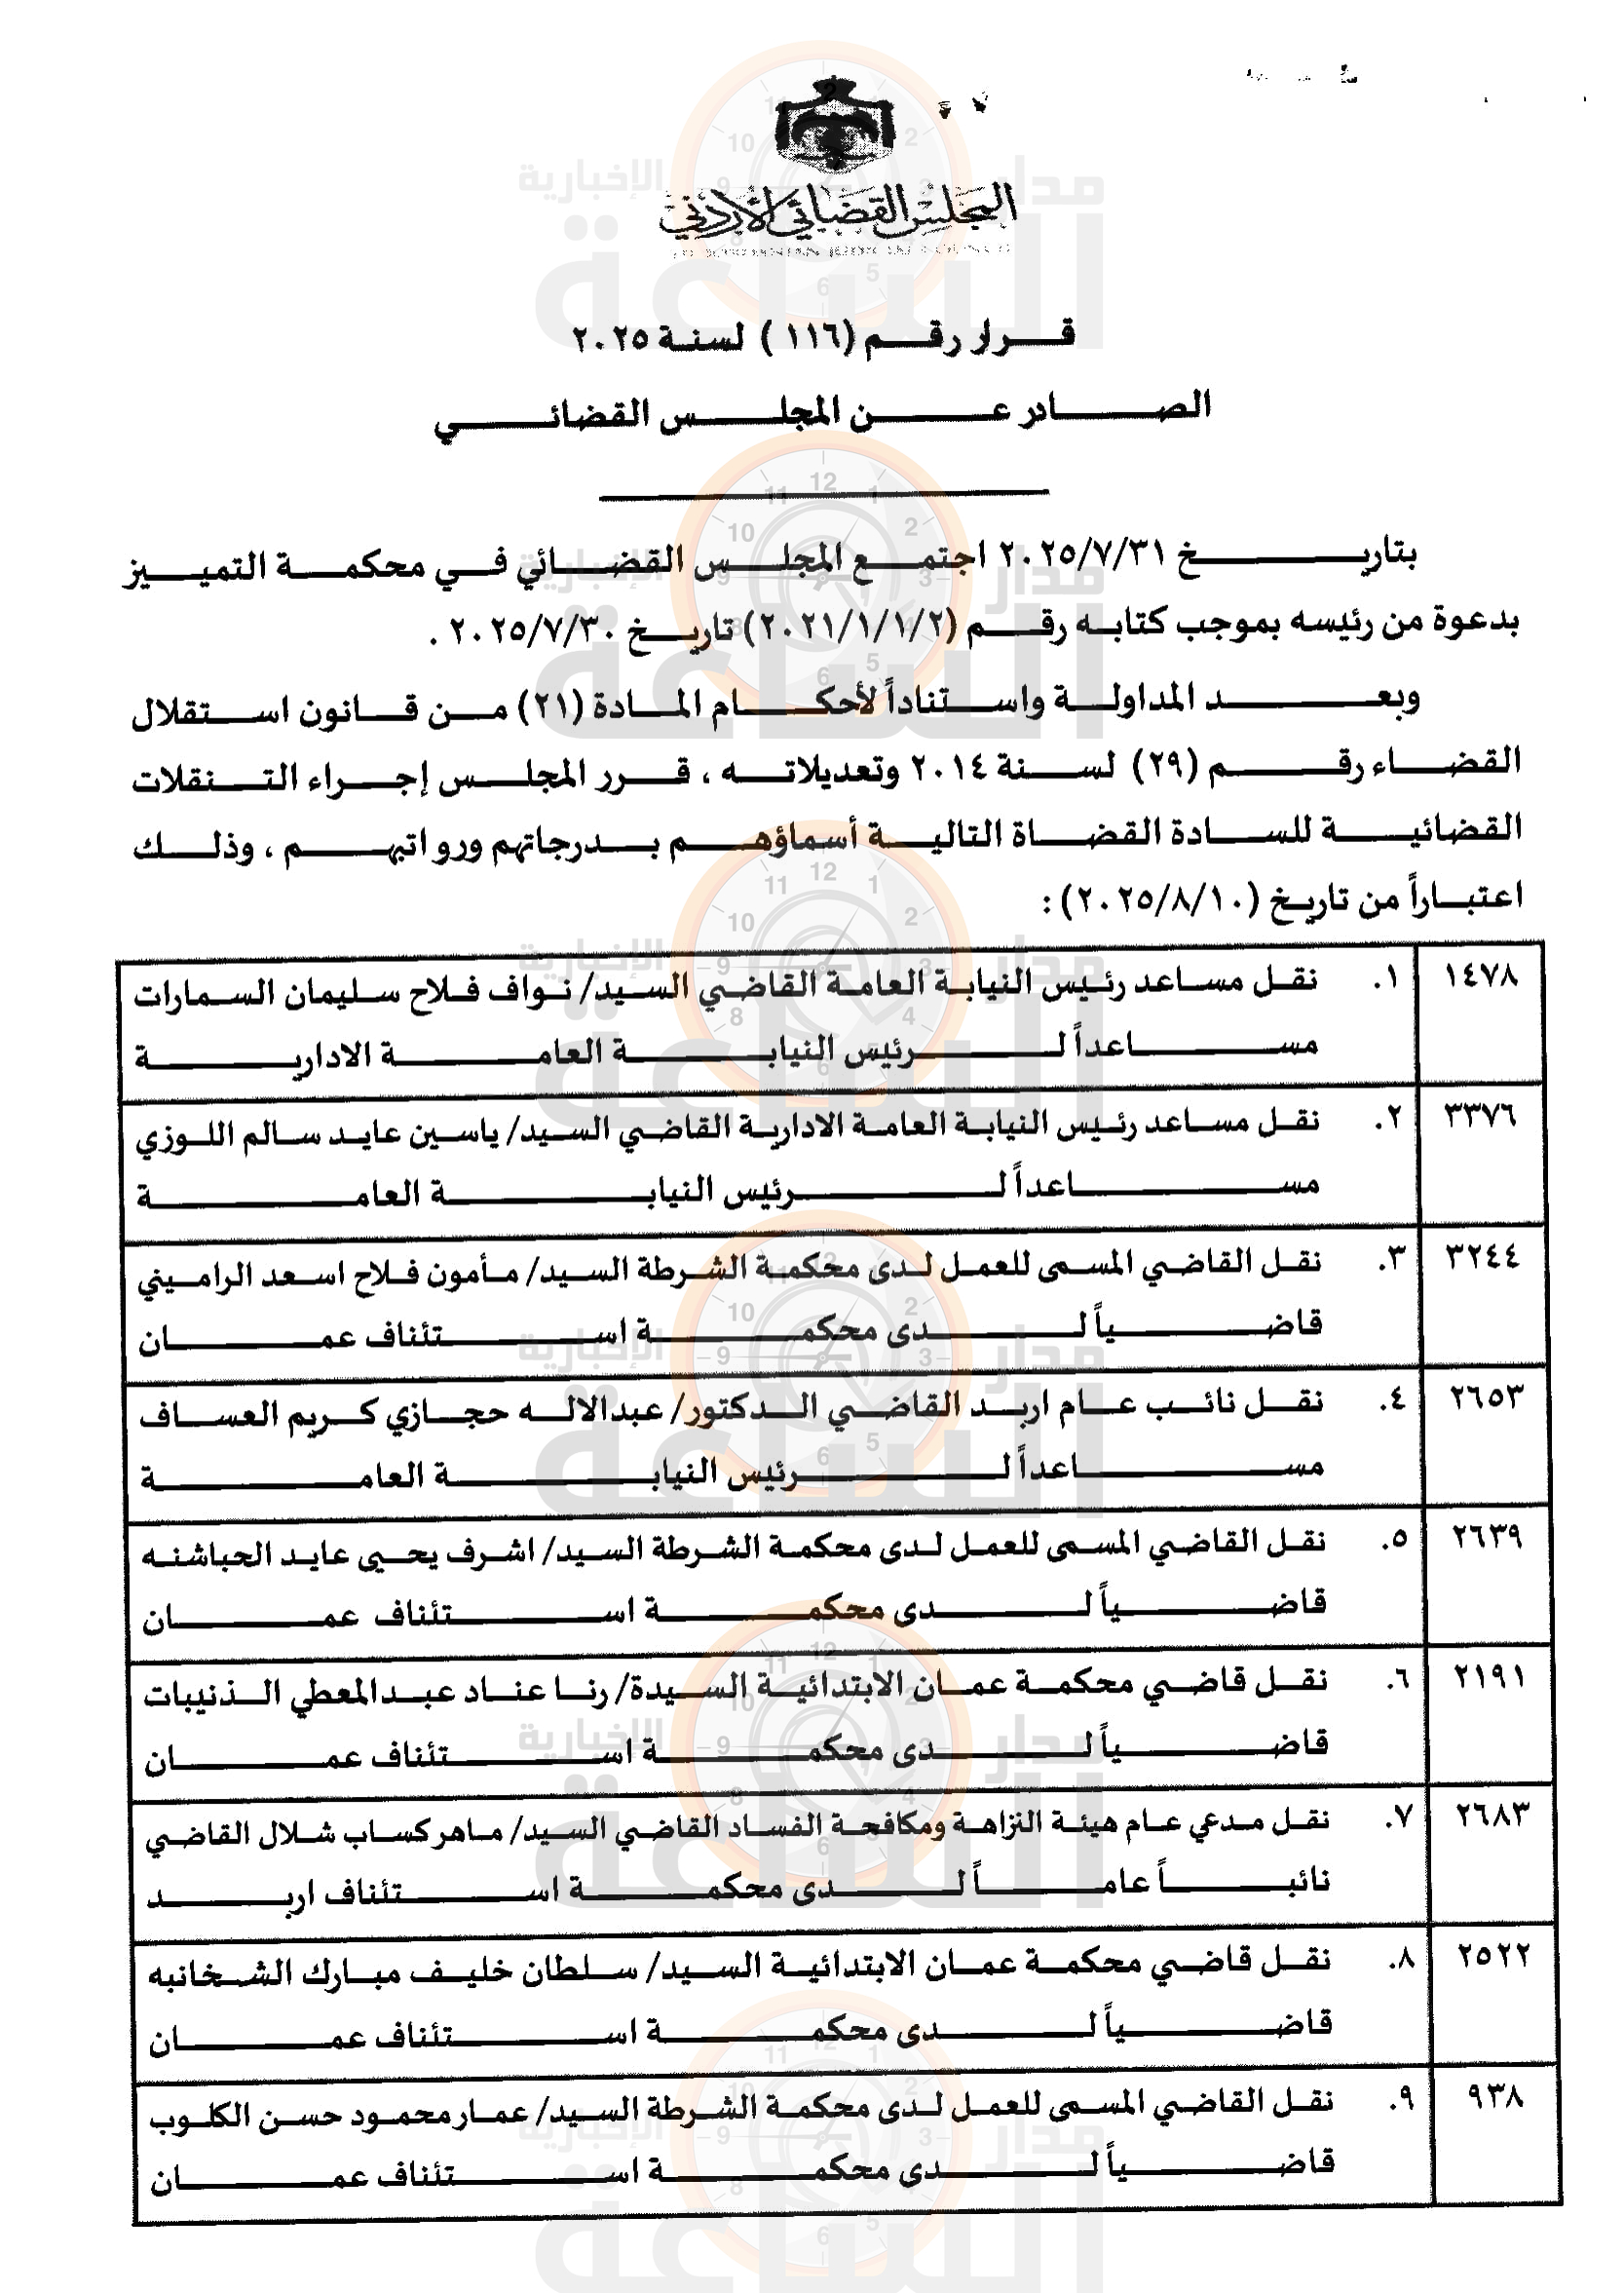 المجلس القضائي الأردني
قرار رقم (١١٦) لسنة ٢٠٢٥
الصادر عن المجلس القضائي
بتاريخ ٢٠٢٥/٧/٣١ اجتمع المجلس القضائي في محكمة التمييز
بدعوة من رئيسه بموجب كتابه رقم (٢٠٢١/١/١/٢) تاريخ ٢٠٢٥/٧/٣٠ .
وبعد المداولة واستناداً لأحكام المادة (٢١) من قانون استقلال
القضاء رقم (٢٩) لسنة ٢٠١٤ وتعديلاته ، قرر المجلس إجراء التنقلات
القضائية للسادة القضاة التالية أسماؤهم بدرجاتهم ورواتبهم ، وذلك
اعتباراً من تاريخ (٢٠٢٥/٨/١٠) :
١٤٧٨ ١. نقل مساعد رئيس النيابة العامة القاضي السيد/ نواف فلاح سليمان السمارات
مساعداً لرئيس النيابة العامة الادارية
٣٣٧٦ ٢. نقل مساعد رئيس النيابة العامة الادارية القاضي السيد/ ياسين عايد سالم اللوزي
مساعداً لرئيس النيابة العامة
٣٢٤٤ ٣. نقل القاضي المسمى للعمل لدى محكمة الشرطة السيد/ مأمون فلاح اسعد الراميني
قاضياً لدى محكمة استئناف عمان
٢٦٥٣ ٤. نقل نائب عام اربد القاضي الدكتور/ عبدالاله حجازي كريم العساف
مساعداً لرئيس النيابة العامة
٢٦٣٩ ٥. نقل القاضي المسمى للعمل لدى محكمة الشرطة السيد/ اشرف يحيى عايد الحباشنه
قاضياً لدى محكمة استئناف عمان
٢١٩١ ٦. نقل قاضي محكمة عمان الابتدائية السيدة/ رنا عناد عبدالمعطي الذنيبات
قاضياً لدى محكمة استئناف عمان
٢٦٨٣ ٧. نقل مدعي عام هيئة النزاهة ومكافحة الفساد القاضي السيد/ ماهر كساب شلال القاضي
نائباً عاماً لدى محكمة استئناف اربد
٢٥٢٢ ٨. نقل قاضي محكمة عمان الابتدائية السيد/ سلطان خليف مبارك الشخانبه
قاضياً لدى محكمة استئناف عمان
٩٣٨ ٩. نقل القاضي المسمى للعمل لدى محكمة الشرطة السيد/ عمار محمود حسن الكلوب
قاضياً لدى محكمة استئناف عمان
مدار الساعة الإخبارية